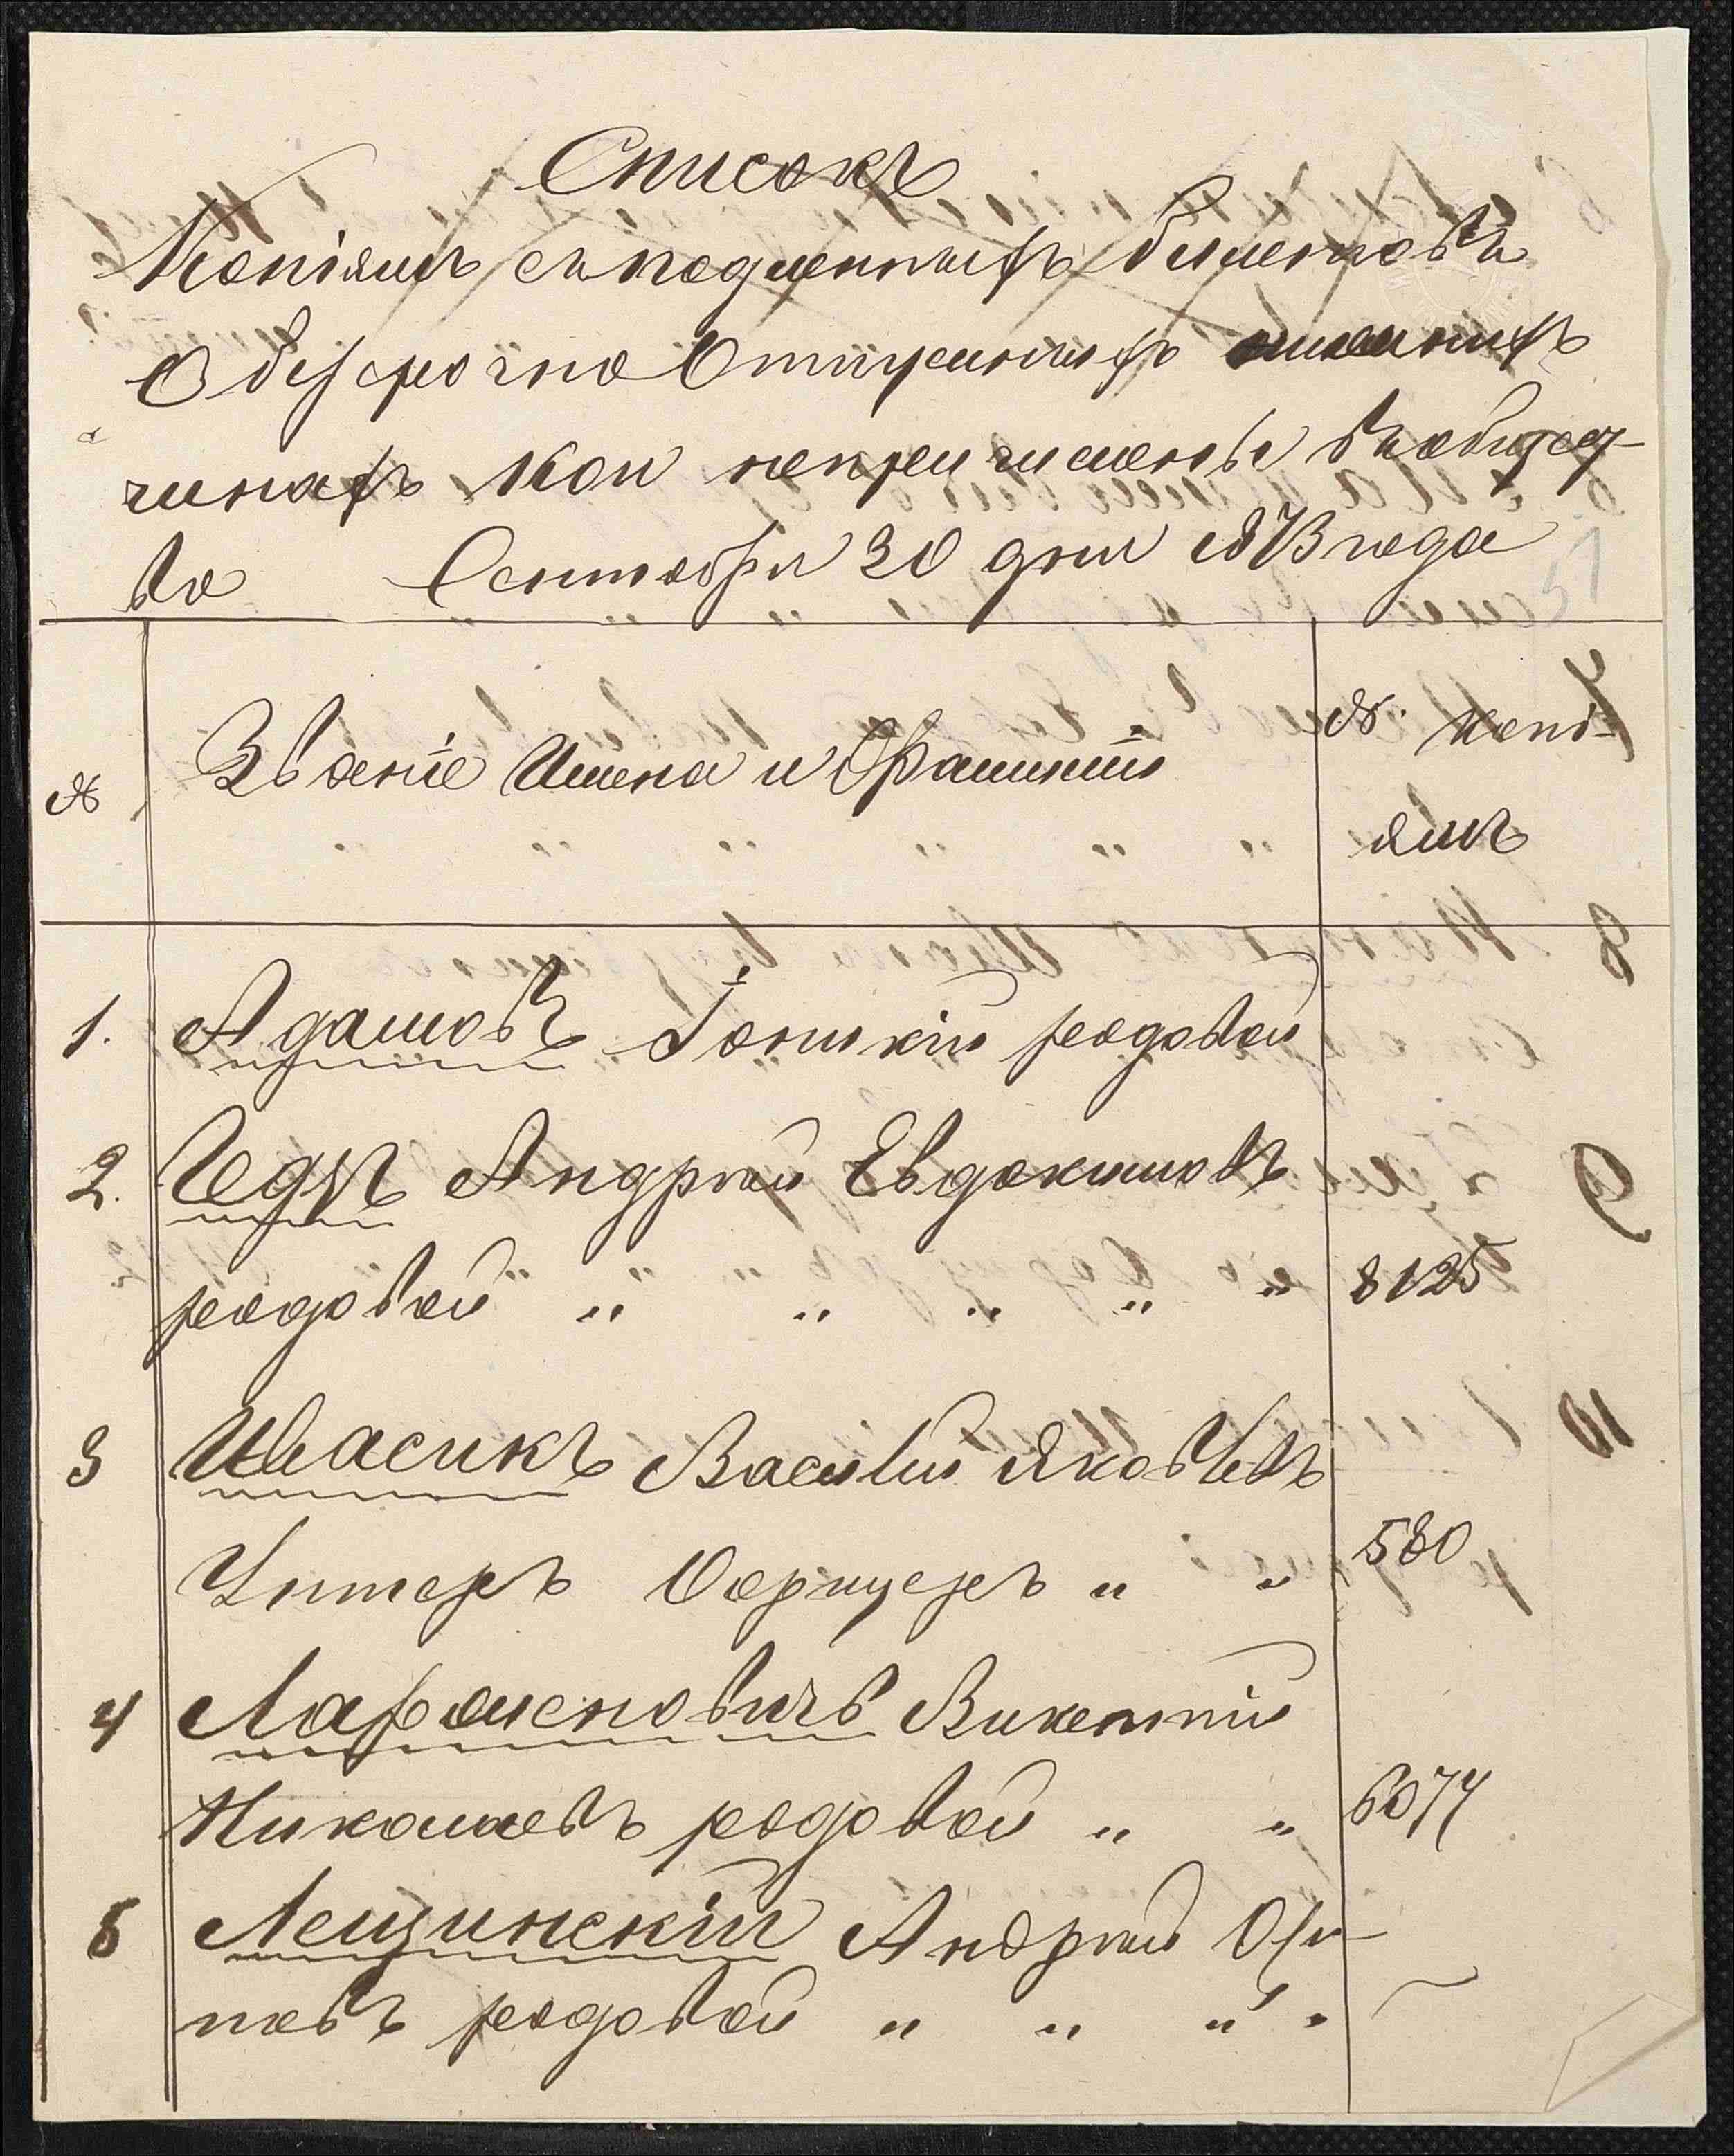 Списокъ
Копіямъ съ подленныхъ билетовъ
О безсрочно Отпускныхъ нижнихъ
чинахъ кои непричислены въ общес-
во Сентября 30 дня 1873 года
№ Званіе Имена и Фамиліи № копі-
ямъ
1. Адамовъ Іоникій рядовой
2. Гедзъ Андрей Евдокимовъ
рядовой " " " " " 8125
3 Ивасикъ Василій Яковлевъ
Унтеръ Офрицеръ " " 580
4 Лафреновичъ Викентій
Николаевъ рядовой " " 6074
5 Лещинскій Андрей Оси-
повъ рядовой " " " "